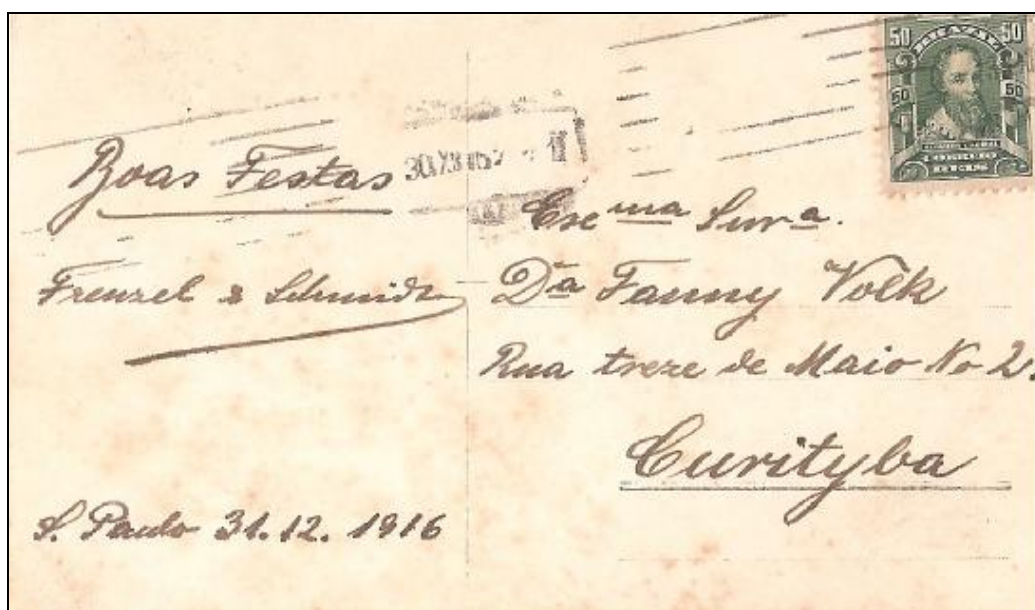 Boas Festas
Frenzel & Schmidt
S. Paulo 31.12.1916
Exe ma Snr a.
D a Fanny Volk
Rua treze de Maio No 2.
Curityba
50 50
50 50
CORREIO